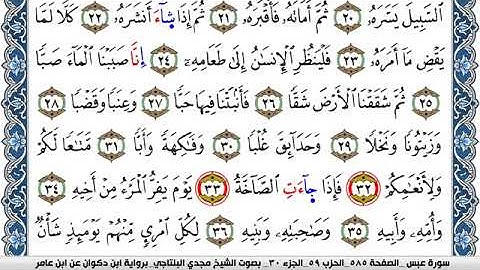 ٱلسَّبِيلَ يَسَّرَهُۥ ٢٠ ثُمَّ أَمَاتَهُۥ فَأَقۡبَرَهُۥ ٢١ ثُمَّ إِذَا شَآءَ أَنشَرَهُۥ ٢٢ كَلَّا لَمَّا
يَقۡضِ مَآ أَمَرَهُۥ ٢٣ فَلۡيَنظُرِ ٱلۡإِنسَٰنُ إِلَىٰ طَعَامِهِۦٓ ٢٤ إِنَّا صَبَبۡنَا ٱلۡمَآءَ صَبّٗا
٢٥ ثُمَّ شَقَقۡنَا ٱلۡأَرۡضَ شَقّٗا ٢٦ فَأَنۢبَتۡنَا فِيهَا حَبّٗا ٢٧ وَعِنَبٗا وَقَضۡبٗا ٢٨
وَزَيۡتُونٗا وَنَخۡلٗا ٢٩ وَحَدَآئِقَ غُلۡبٗا ٣٠ وَفَٰكِهَةٗ وَأَبّٗا ٣١ مَّتَٰعٗا لَّكُمۡ
وَلِأَنۡعَٰمِكُمۡ ٣٢ فَإِذَا جَآءَتِ ٱلصَّآخَّةُ ٣٣ يَوۡمَ يَفِرُّ ٱلۡمَرۡءُ مِنۡ أَخِيهِ ٣٤
وَأُمِّهِۦ وَأَبِيهِ ٣٥ وَصَٰحِبَتِهِۦ وَبَنِيهِ ٣٦ لِكُلِّ ٱمۡرِيٕٖ مِّنۡهُمۡ يَوۡمَئِذٖ شَأۡنٞ
سورة عبس _الصفحة ٥٨٥_الحزب ٥٩_الجزء ٣٠_ بصوت الشيخ مجدي البلتاجي_برواية ابن ذكوان عن ابن عامر